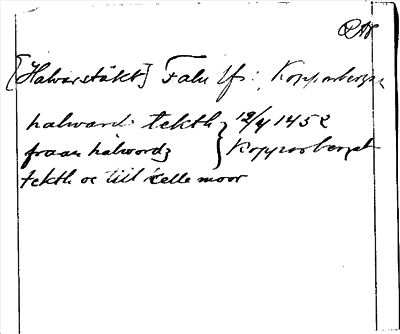 [Halvarstäkt] Falu lfs: Kopparberget
halward: tekth } 12/4 1452
fraan halwordz } Kopparberget
tekth oc till kelle moor